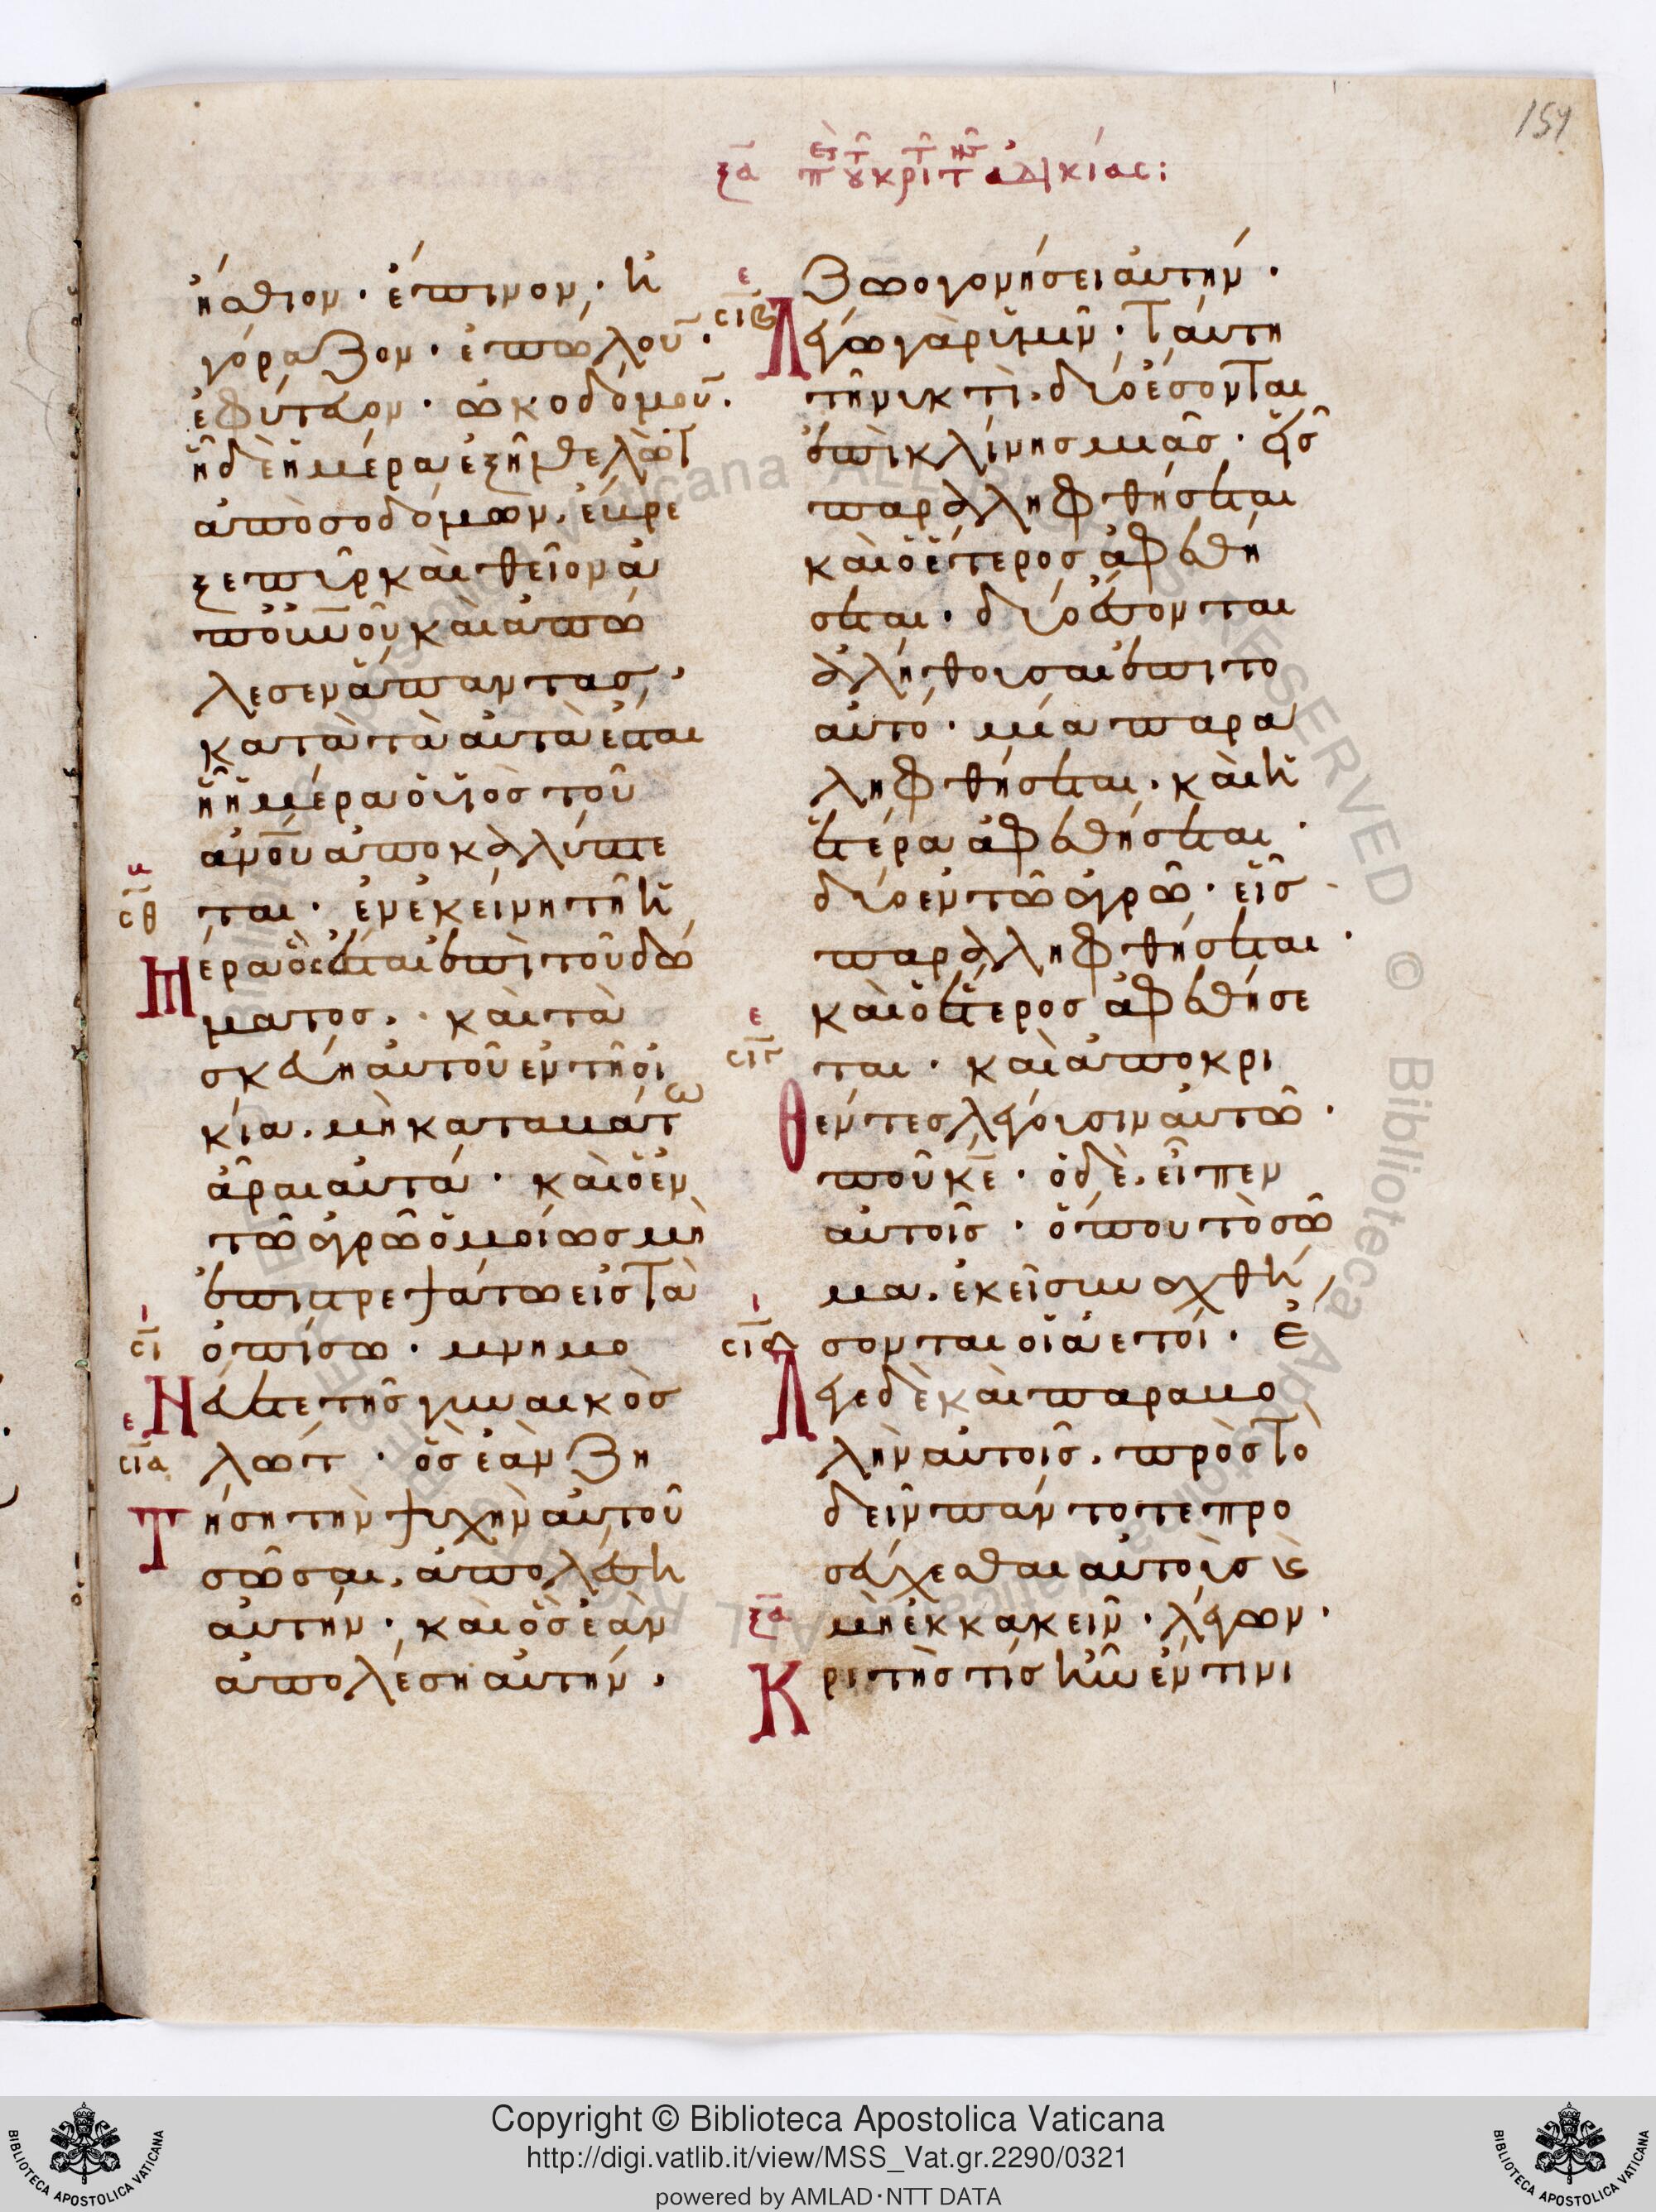 154
ξα περὶ τοῦ κριτοῦ τῆς ἀδικίας:
ἤσθιον· ἔπινον· ἠ
γόραζον· ἐπώλουν·
ἐφύτευον· ὠκοδόμουν·
ἧ δὲ ἡμέρα ἐξῆλθε λὼτ
ἀπὸ σοδόμων, ἔβρε
ξε πῦρ καὶ θεῖον ἀ
π οὐνοῦ καὶ ἀπώ
λεσεν ἅπαντας,
κατὰ τὰ αὐτὰ ἔσται
ᾗ ἡμέρα ὁ υἱὸς τοῦ
ἀνου ἀποκαλύπτε
ται· ἐν ἐκείνη τῆ ἡ
σθ
Μέρα ὃς ἔσται ἐπὶ τοῦ δώ
ματος, καὶ τὰ
σκεύη αὐτοῦ ἐν τῆ οἰ
κία, μὴ καταβάτω
ἆραι αὐτά· καὶ ὁ ἐν
τῶ ἀγρῶ ὁμοίως μὴ
ἐπιστρεψάτω εἰς τὰ
σι ὀπίσω· μνημο
Νεύετε τῆς γυναικὸς
σια λώτ· ὃς ἐὰν ζη
Τήση τὴν ψυχὴν αὐτοῦ
σῶσαι, ἀπολέσει
αὐτήν· καὶ ὃς ἐὰν
ἀπολέση αὐτήν,
ζωογονήσει αὐτήν·
σιβ
Λέγω γὰρ ὑμῖν· ταύτη
τῆ νυκτὶ, δύο ἔσονται
ἐπὶ κλίνης μιᾶς· εἷς
παραληφθήσεται
καὶ ὁ ἕτερος ἀφεθή
σεται· δύο ἔσονται
ἀλήθουσαι ἐπι το
αυτό· μία παρα
ληφθήσεται· καὶ ἡ
ἑτέρα ἀφεθήσεται·
δύο ἐν τῶ ἀγρῶ· εἷς
παραληφθήσεται·
καὶ ὁ ἕτερος ἀφεθήσε
σιγ ται· καὶ ἀποκρι
Θέντες λέγουσιν αὐτῶ·
ποῦ κε· ὁ δὲ, εἶπεν
αὐτοῖς· ὅπου τὸ σῶ
μα, ἐκεῖ συναχθή
σιδ σονται οἱ ἀετοί· Ἔ
Λεγε δὲ καὶ παραβο
λὴν αὐτοῖς, πρὸς τὸ
δεῖν πάντοτε προ
σεύχεσθαι αὐτοὺς καὶ
ξα μὴ ἐκκακεῖν· λέγων·
Κριτὴς τίς ἦν ἔν τινι
Copyright © Biblioteca Apostolica Vaticana
http://digi.vatlib.it/view/MSS_Vat.gr.2290/0321
powered by AMLAD·NTT DATA
BIBLIOTECA APOSTOLICA VATICANA
BIBLIOTECA APOSTOLICA VATICANA